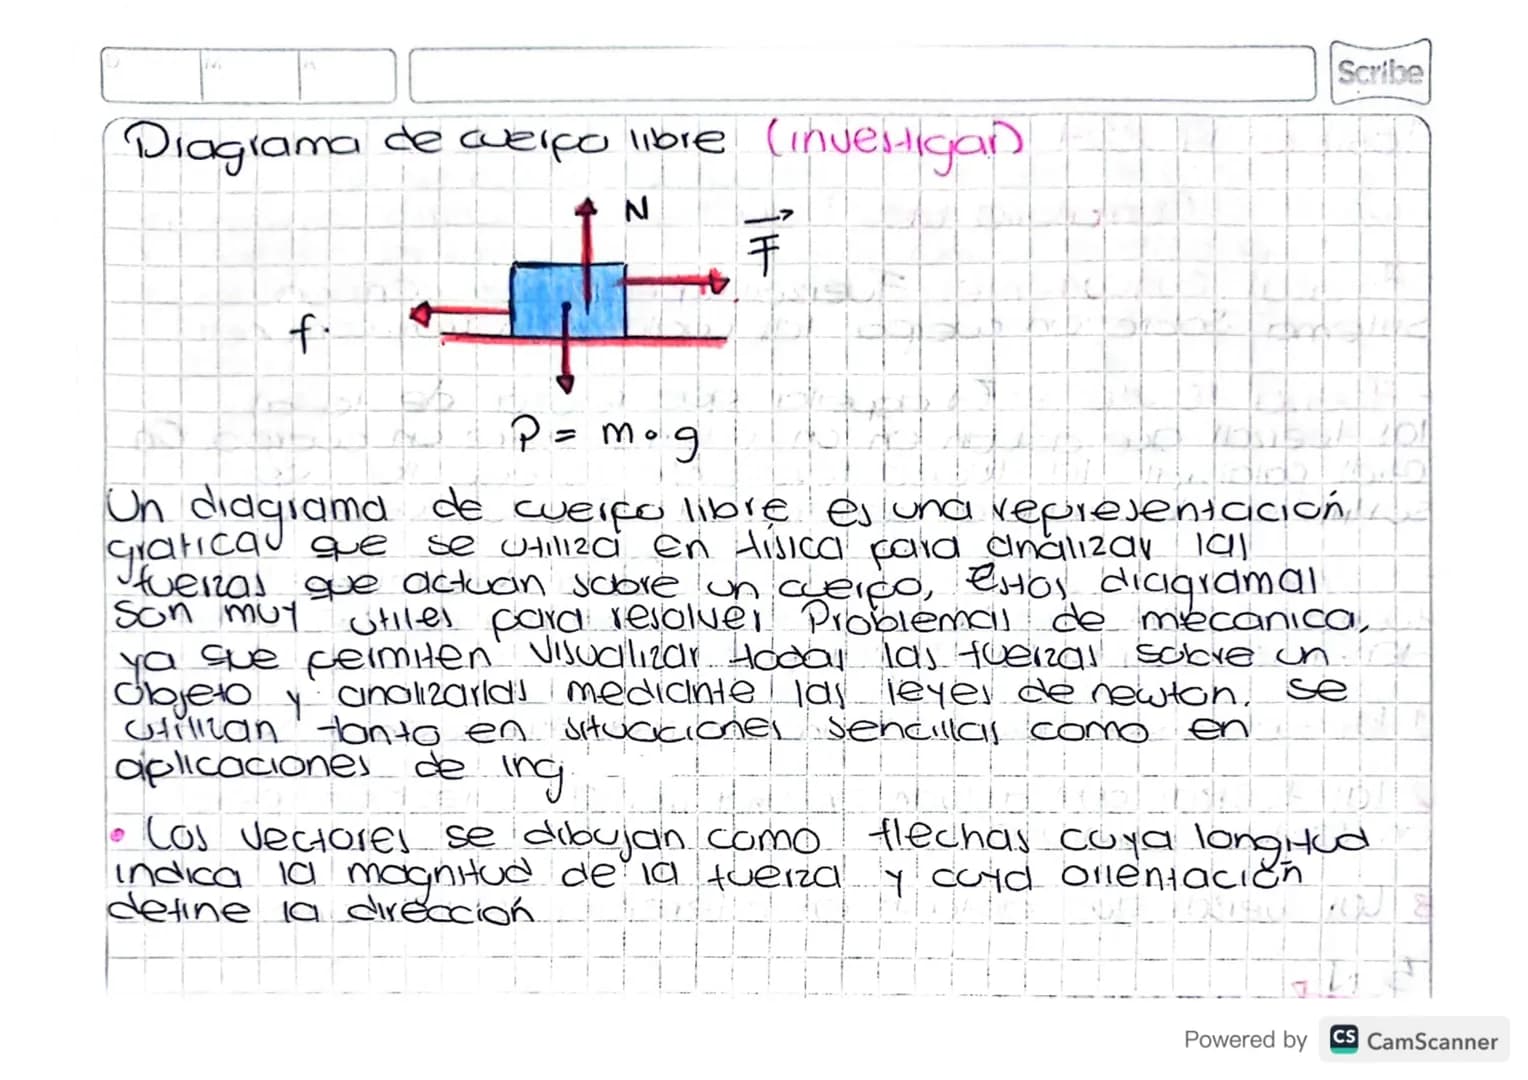 Scribe
Diagrama de cuerpo libre (investigar)
N
F
f.
P = m · g
Un diagrama de cuerpo libre es una representación
grafica que se utiliza en física para análizar las
fuerzas que actuan sobre un cuerpo, Estos diagramas
son muy utiles para resolver Problemas de mecanica,
ya que permiten visualizar todas las fuerzas sobre un
objeto y analizarlas mediante las leyes de newton. se
utilizan tanto en situaciones sencillas como en
aplicaciones de ing
• Los vectores se dibujan como flechas cuya longitud
indica la magnitud de la fuerza y cuya orientación
define la dirección
Powered by CS CamScanner